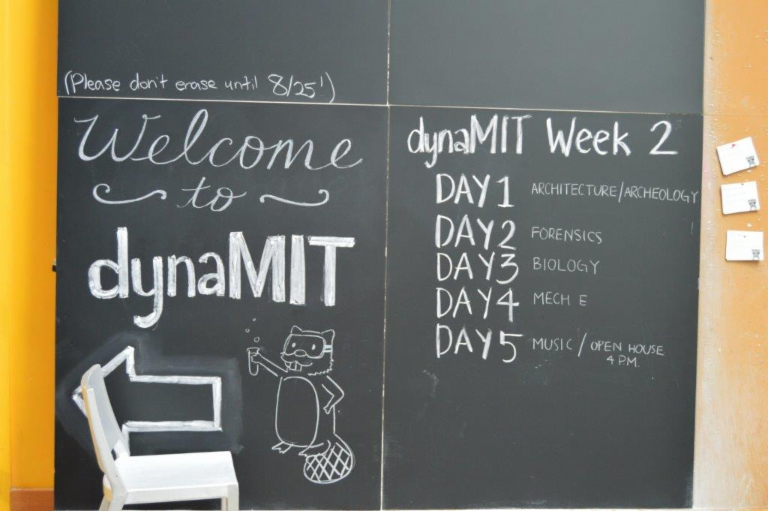 (Please don't erase until 8/25!)
Welcome
to
dynaMIT
dynaMIT Week 2
DAY 1 ARCHITECTURE/ARCHEOLOGY
DAY 2 FORENSICS
DAY 3 BIOLOGY
DAY 4 MECH E
DAY 5 MUSIC / OPEN HOUSE
4 P.M.